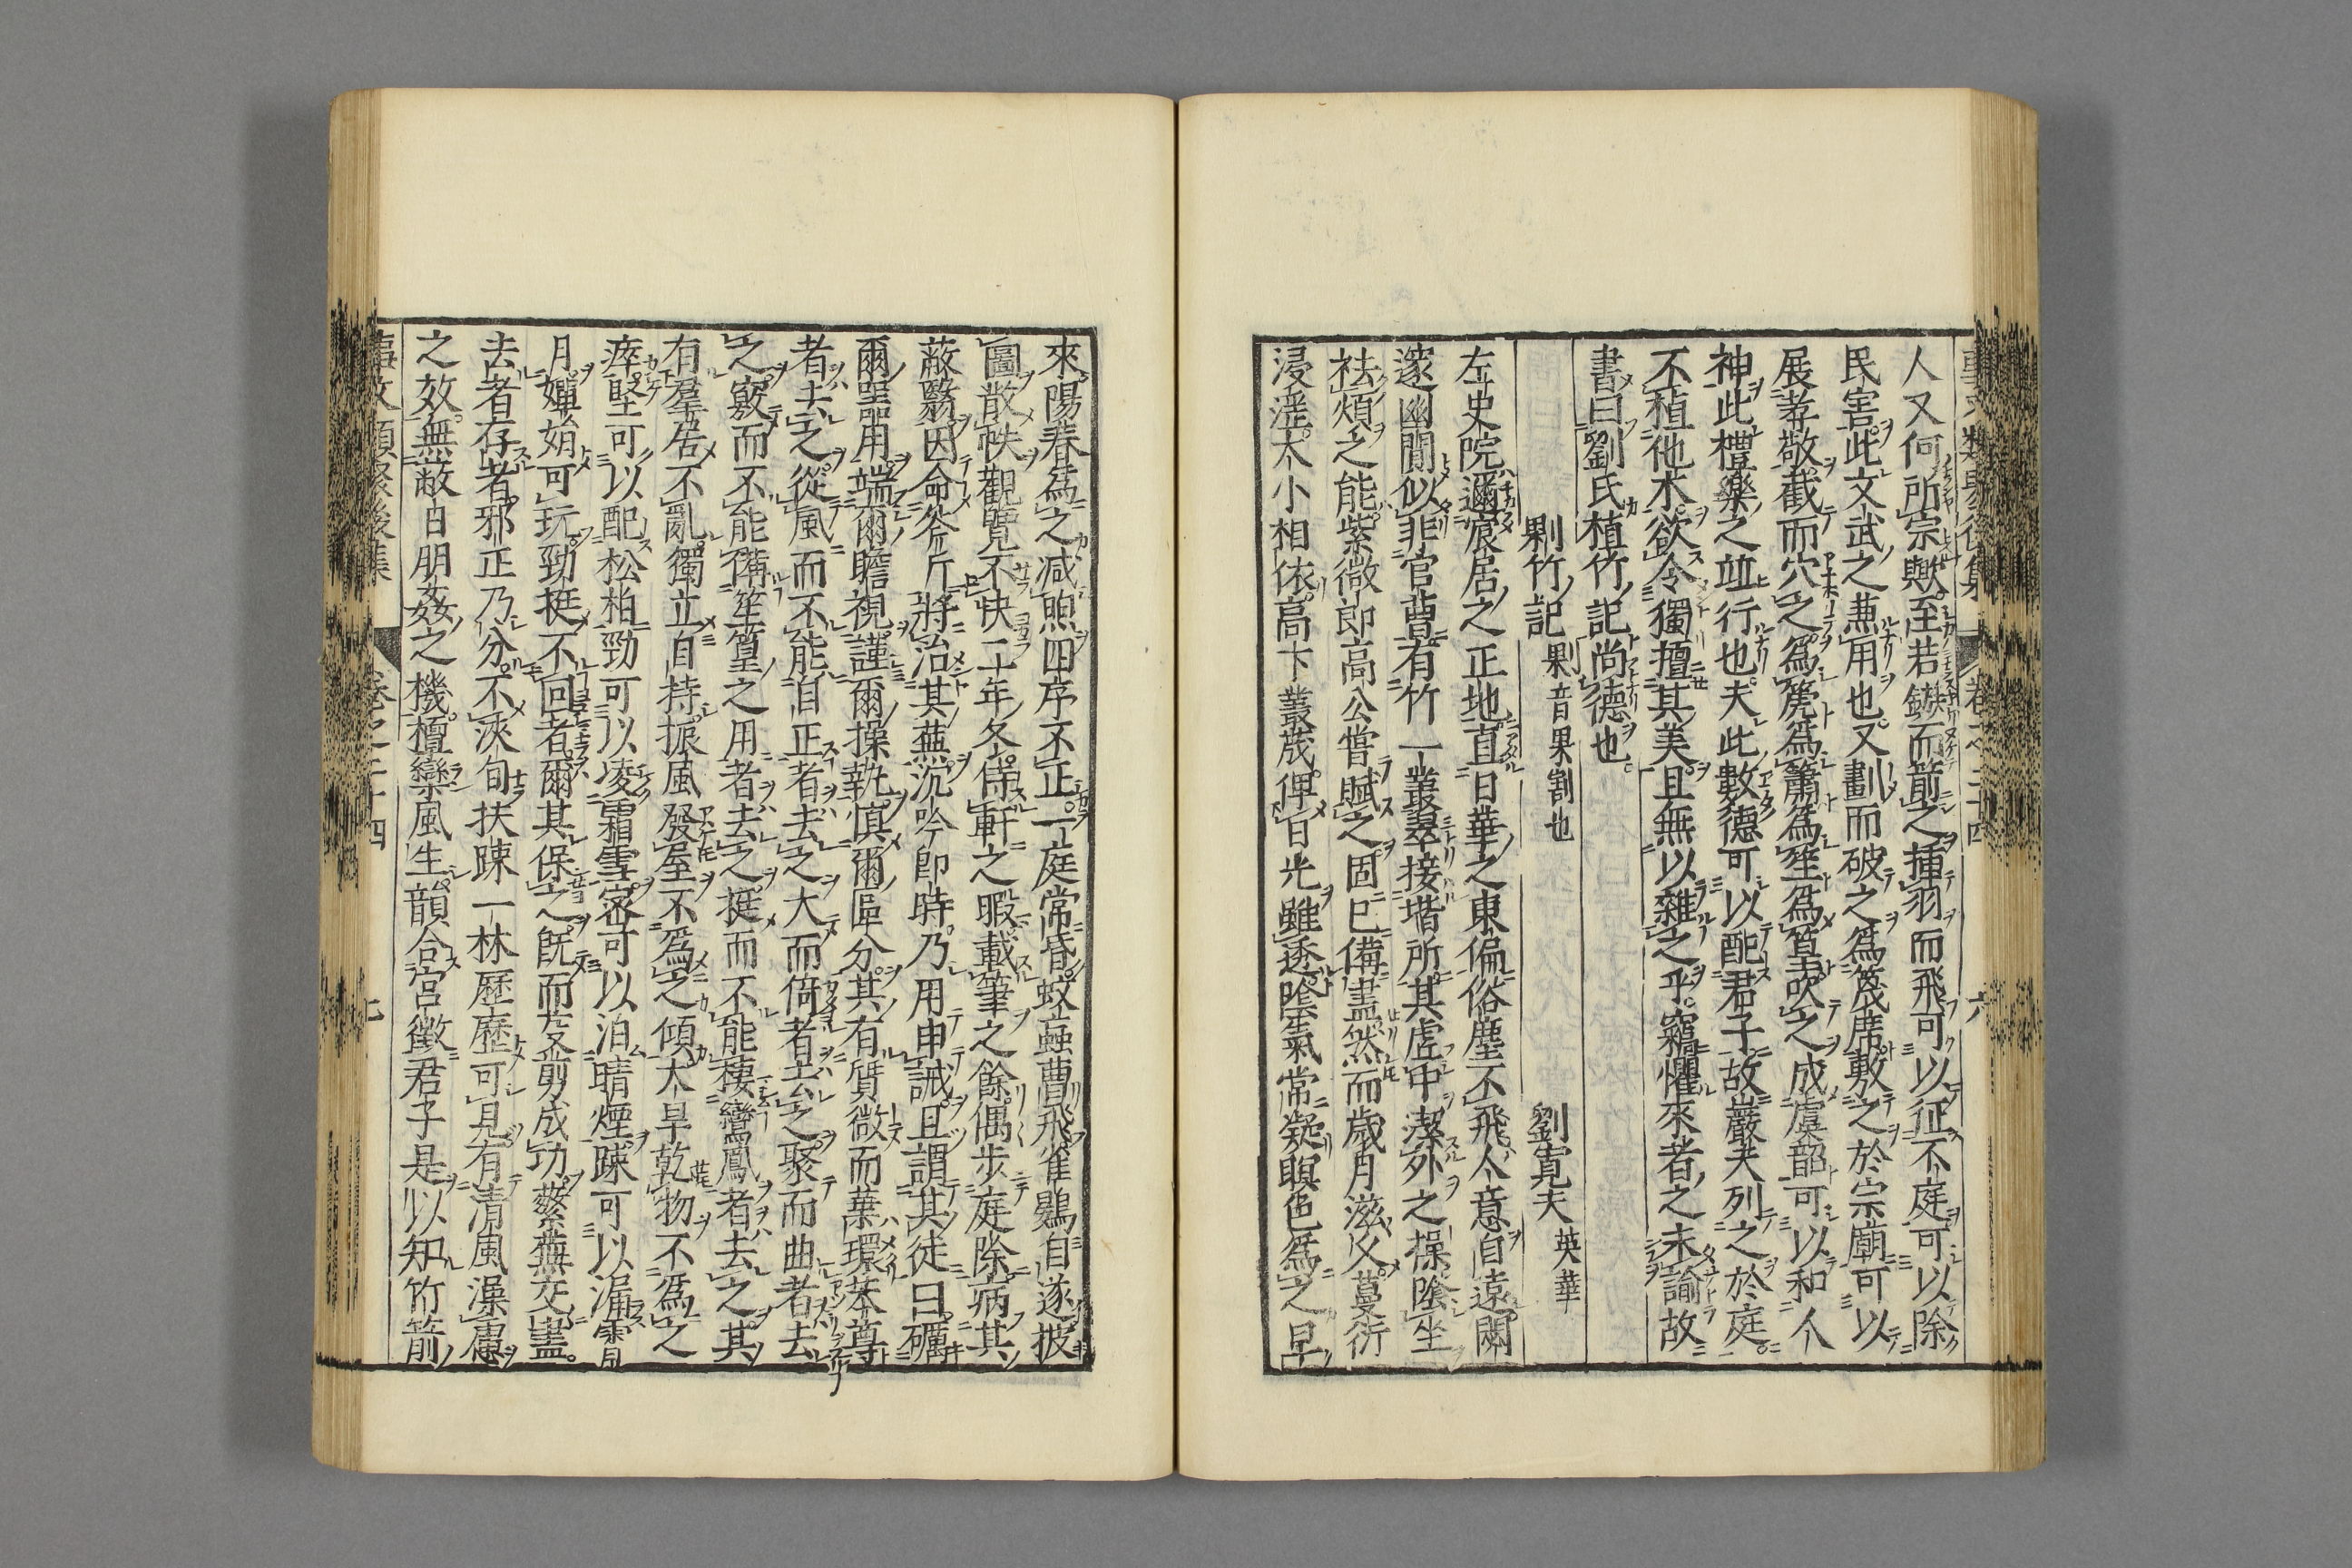 人又何所宗歟至若鏃而箭之揷羽而飛可以征不庭可以除
民害此文武之兼用也又劃而破之爲篾席敷之於宗廟可以
展孝敬截而穴之爲箎爲簫爲笙爲簧吹之成虞韶可以和人
神此禮樂之並行也夫此數德可以配君子故巖夫列之於庭
不植他木欲令獨擅其美且無以雜之乎竊懼來者之未諭故
書曰劉氏植竹記尚德也
剿竹記 剿音果割也 劉寬夫 英華
左史院邇宸居之正地直日華之東偏俗塵不飛人意自遠閟
邃幽閒似非官曹有竹一叢翠接堦所其虛中潔外之操陰坐
祛煩之能紫微郎高公嘗賦之固已備盡然而歲月滋久蔓衍
浸滛大小相依高下叢茂俾白光雖透陰氣常凝瞑色爲之早
來陽春爲之減煦四序不正一庭常昏蚊蝱曹飛雀鷃自遂披
圖散帙觀覽不快二年冬侍軒之暇載筆之餘偶步庭除病其
蔽翳因命斧斤將治其蕪沉吟卽時乃用申誡且謂其徒曰礪
爾器用端爾瞻視謹爾操執愼爾區分其有質微而葉環苯尊
者去之從風而不能自正者去之大而倚者去之聚而曲者去
之竅而不能備笙篁之用者去之挺而不能棲鸞鳳者去之其
有羣居不亂獨立自持振風發屋不爲之傾大旱乾物不爲之
瘁堅可以配松柏勁可以凌霜雪密可以泊晴煙踈可以漏霄
月嬋娟可玩勁挺不回者爾其保之旣而芟翦成功蘩蕪交盡
去者存者邪正乃分不浹旬扶踈一林歷歷可見有清風澡慮
之效無敝日朋姦之機檀欒風生韻合宮徵君子是以知竹箭
事文類聚後集 卷之二十四 七